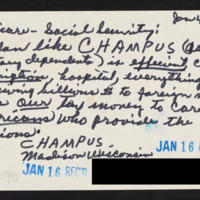 Jan
care - Social Security:
plan like CHAMPUS
tary dependents) is efficient
hospital, everything
giving billions $ to foreign
Our tax money to care
Americans who provide the
CHAMPUS
Madison Wisconsin
JAN 16 REC'D
JAN 16 REC'D
90